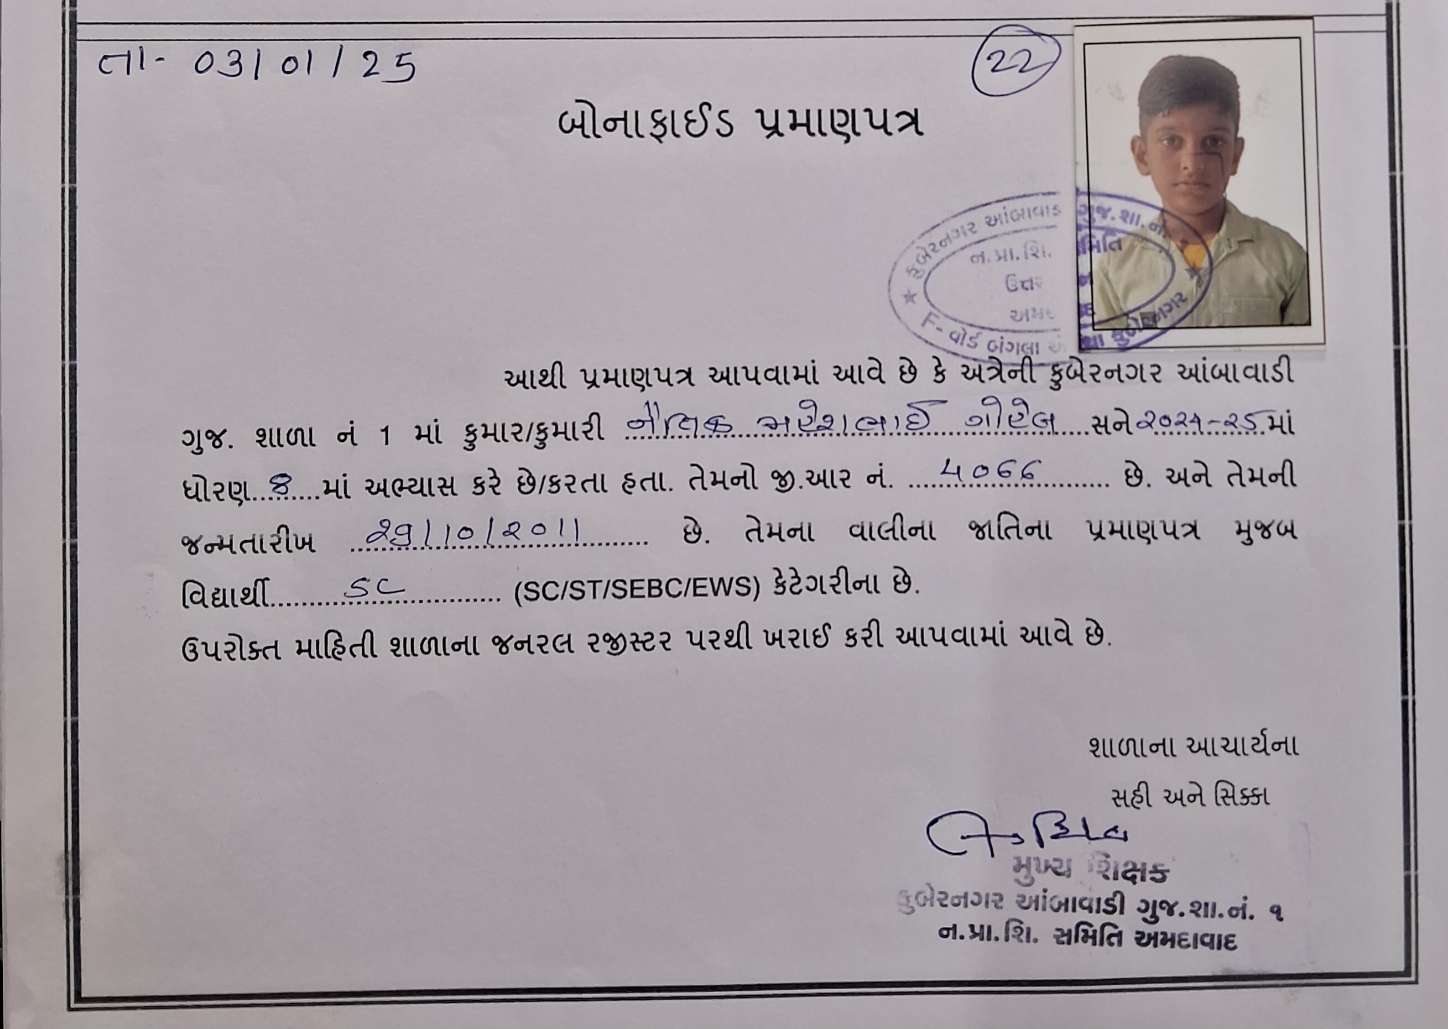 તા- 03/01/25
22
બોનાફાઈડ પ્રમાણપત્ર
કુબેરનગર આંબાવાડ ગુજ.શા.નં.
ન.પ્રા.શિ. મિતિ
ઉત્તર
અમદ
F-વોર્ડ બંગલા કુબેરનગર
આથી પ્રમાણપત્ર આપવામાં આવે છે કે અત્રેની કુબેરનગર આંબાવાડી
ગુજ. શાળા નં 1 માં કુમાર/કુમારી નૈતિક મહેશભાઈ ગોહેલ સને ૨૦૨૪-૨૫ માં
ધોરણ 8 માં અભ્યાસ કરે છે/કરતા હતા. તેમનો જી.આર નં. 4066 છે. અને તેમની
જન્મતારીખ 29/10/2011 છે. તેમના વાલીના જાતિના પ્રમાણપત્ર મુજબ
વિદ્યાર્થી SC (SC/ST/SEBC/EWS) કેટેગરીના છે.
ઉપરોક્ત માહિતી શાળાના જનરલ રજીસ્ટર પરથી ખરાઈ કરી આપવામાં આવે છે.
શાળાના આચાર્યના
સહી અને સિક્કા
મુખ્ય શિક્ષક
કુબેરનગર આંબાવાડી ગુજ.શા.નં. ૧
ન.પ્રા.શિ. સમિતિ અમદાવાદ